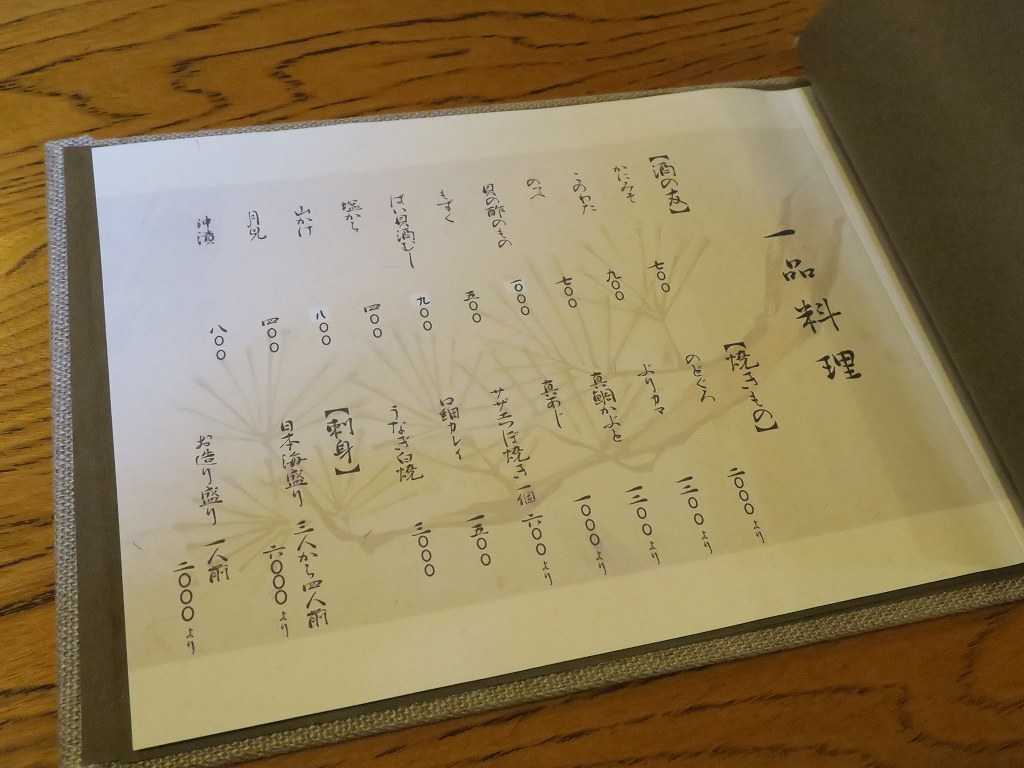 一品料理
【酒の友】
かにみそ 七〇〇
このわた 九〇〇
のべ 七〇〇
貝の酢のもの 一〇〇〇
もずく 五〇〇
ばい貝酒むし 九〇〇
塩から 四〇〇
山かけ 八〇〇
月見 四〇〇
沖漬 八〇〇
【焼きもの】
のどぐろ 二〇〇〇より
ぶりカマ 一二〇〇より
真鯛かぶと 一三〇〇より
真あじ 一〇〇〇より
サザエつぼ焼き 一個 六〇〇より
口細カレイ 一五〇〇
うなぎ白焼 三〇〇〇
【刺身】
日本海盛り 三人から四人前 六〇〇〇より
お造り盛り 一人前 二〇〇〇より